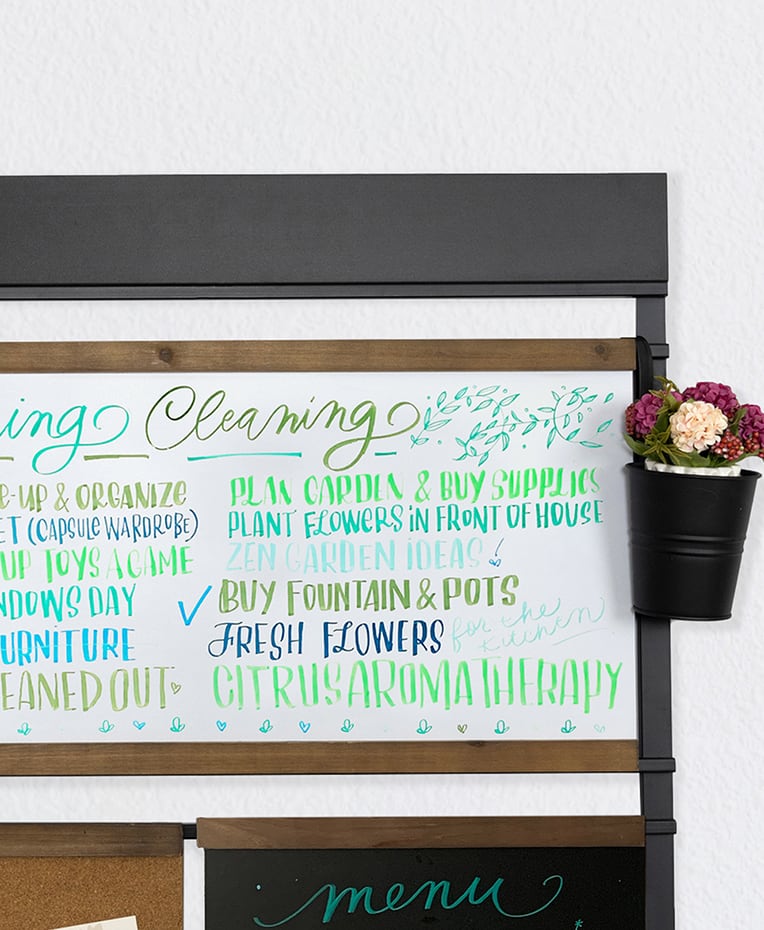 ing Cleaning
E-UP & ORGANIZE
ET (CAPSULE WARDROBE)
UP TOYS A GAME
NDOWS DAY
URNITURE
EANED OUT
PLAN GARDEN & BUY SUPPLIES
PLANT FLOWERS IN FRONT OF HOUSE
ZEN GARDEN IDEAS
✓ BUY FOUNTAIN & POTS
FRESH FLOWERS for the kitchen
CITRUS AROMATHERAPY
menu